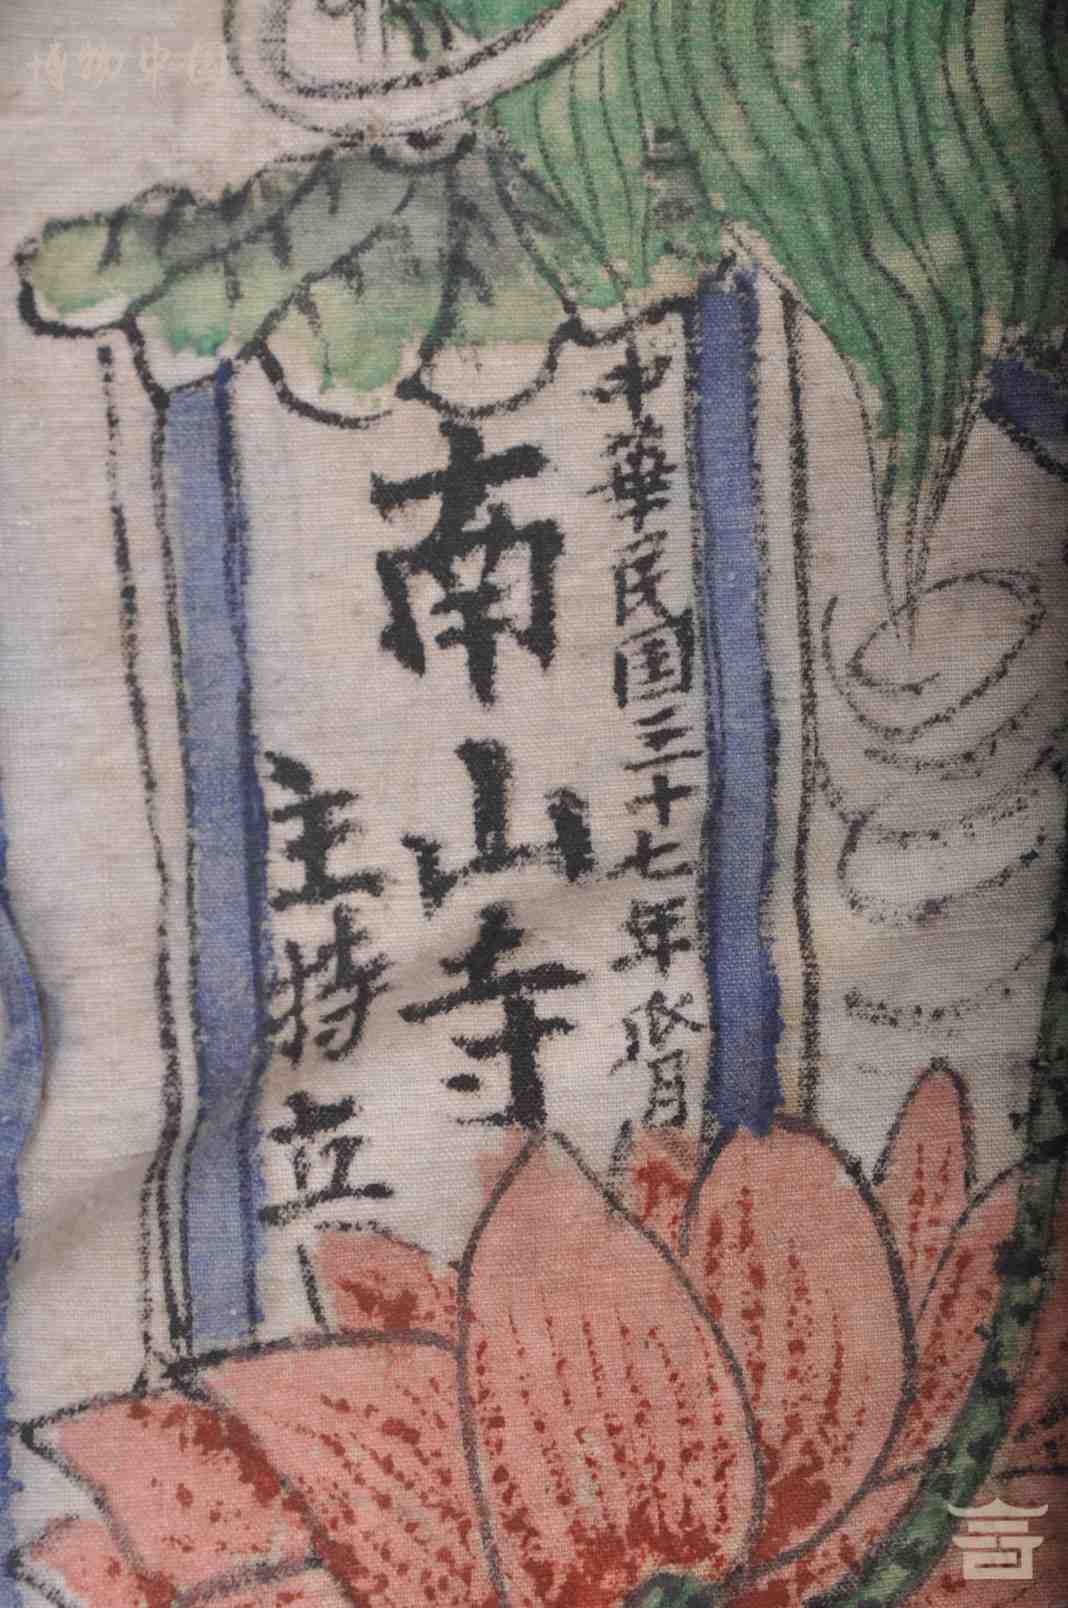 博物中国
中華民囯三十七年 月
南山寺
主持立